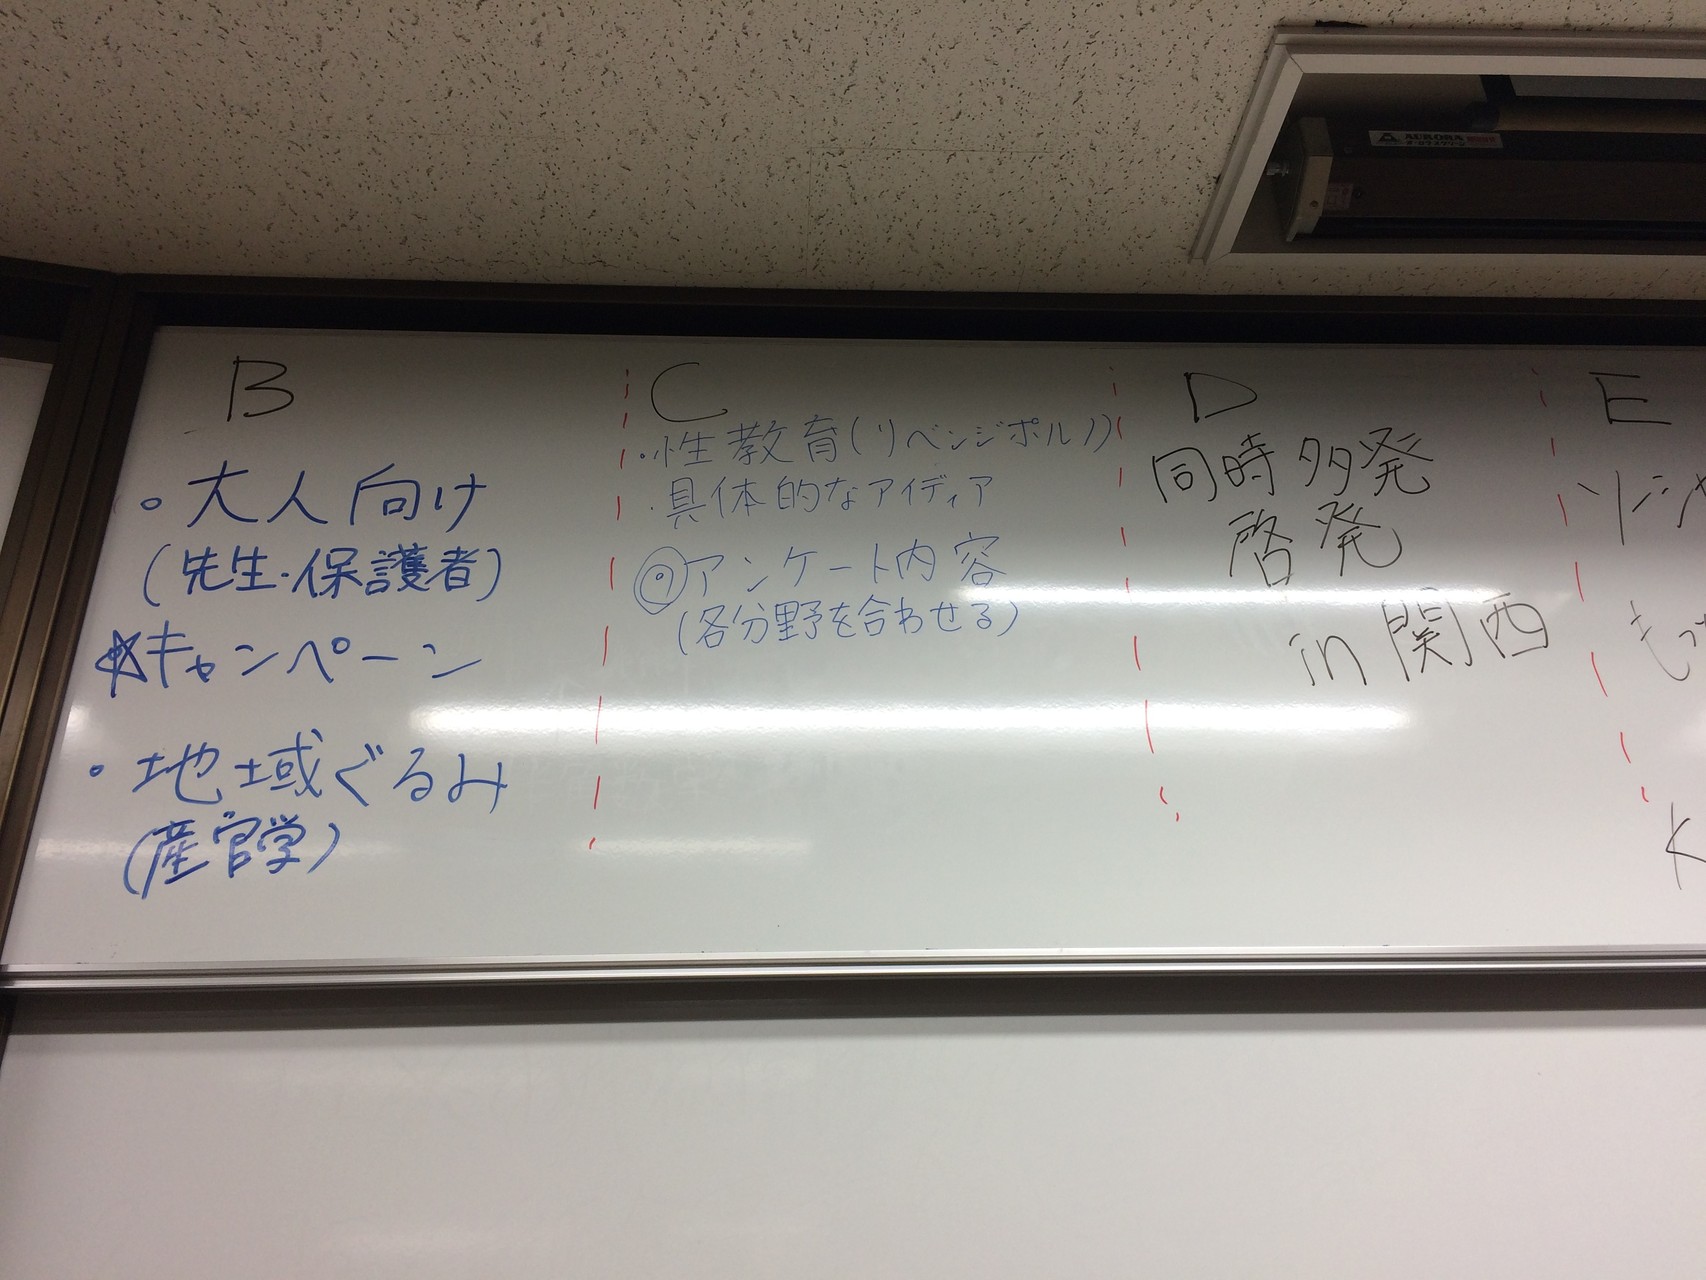 B
・大人向け
(先生・保護者)
☆キャンペーン
・地域ぐるみ
(産官学)
C
・性教育(リベンジポルノ)
・具体的なアイディア
◎アンケート内容
(各分野を合わせる)
D
同時多発
啓発
in 関西
E
AURORA